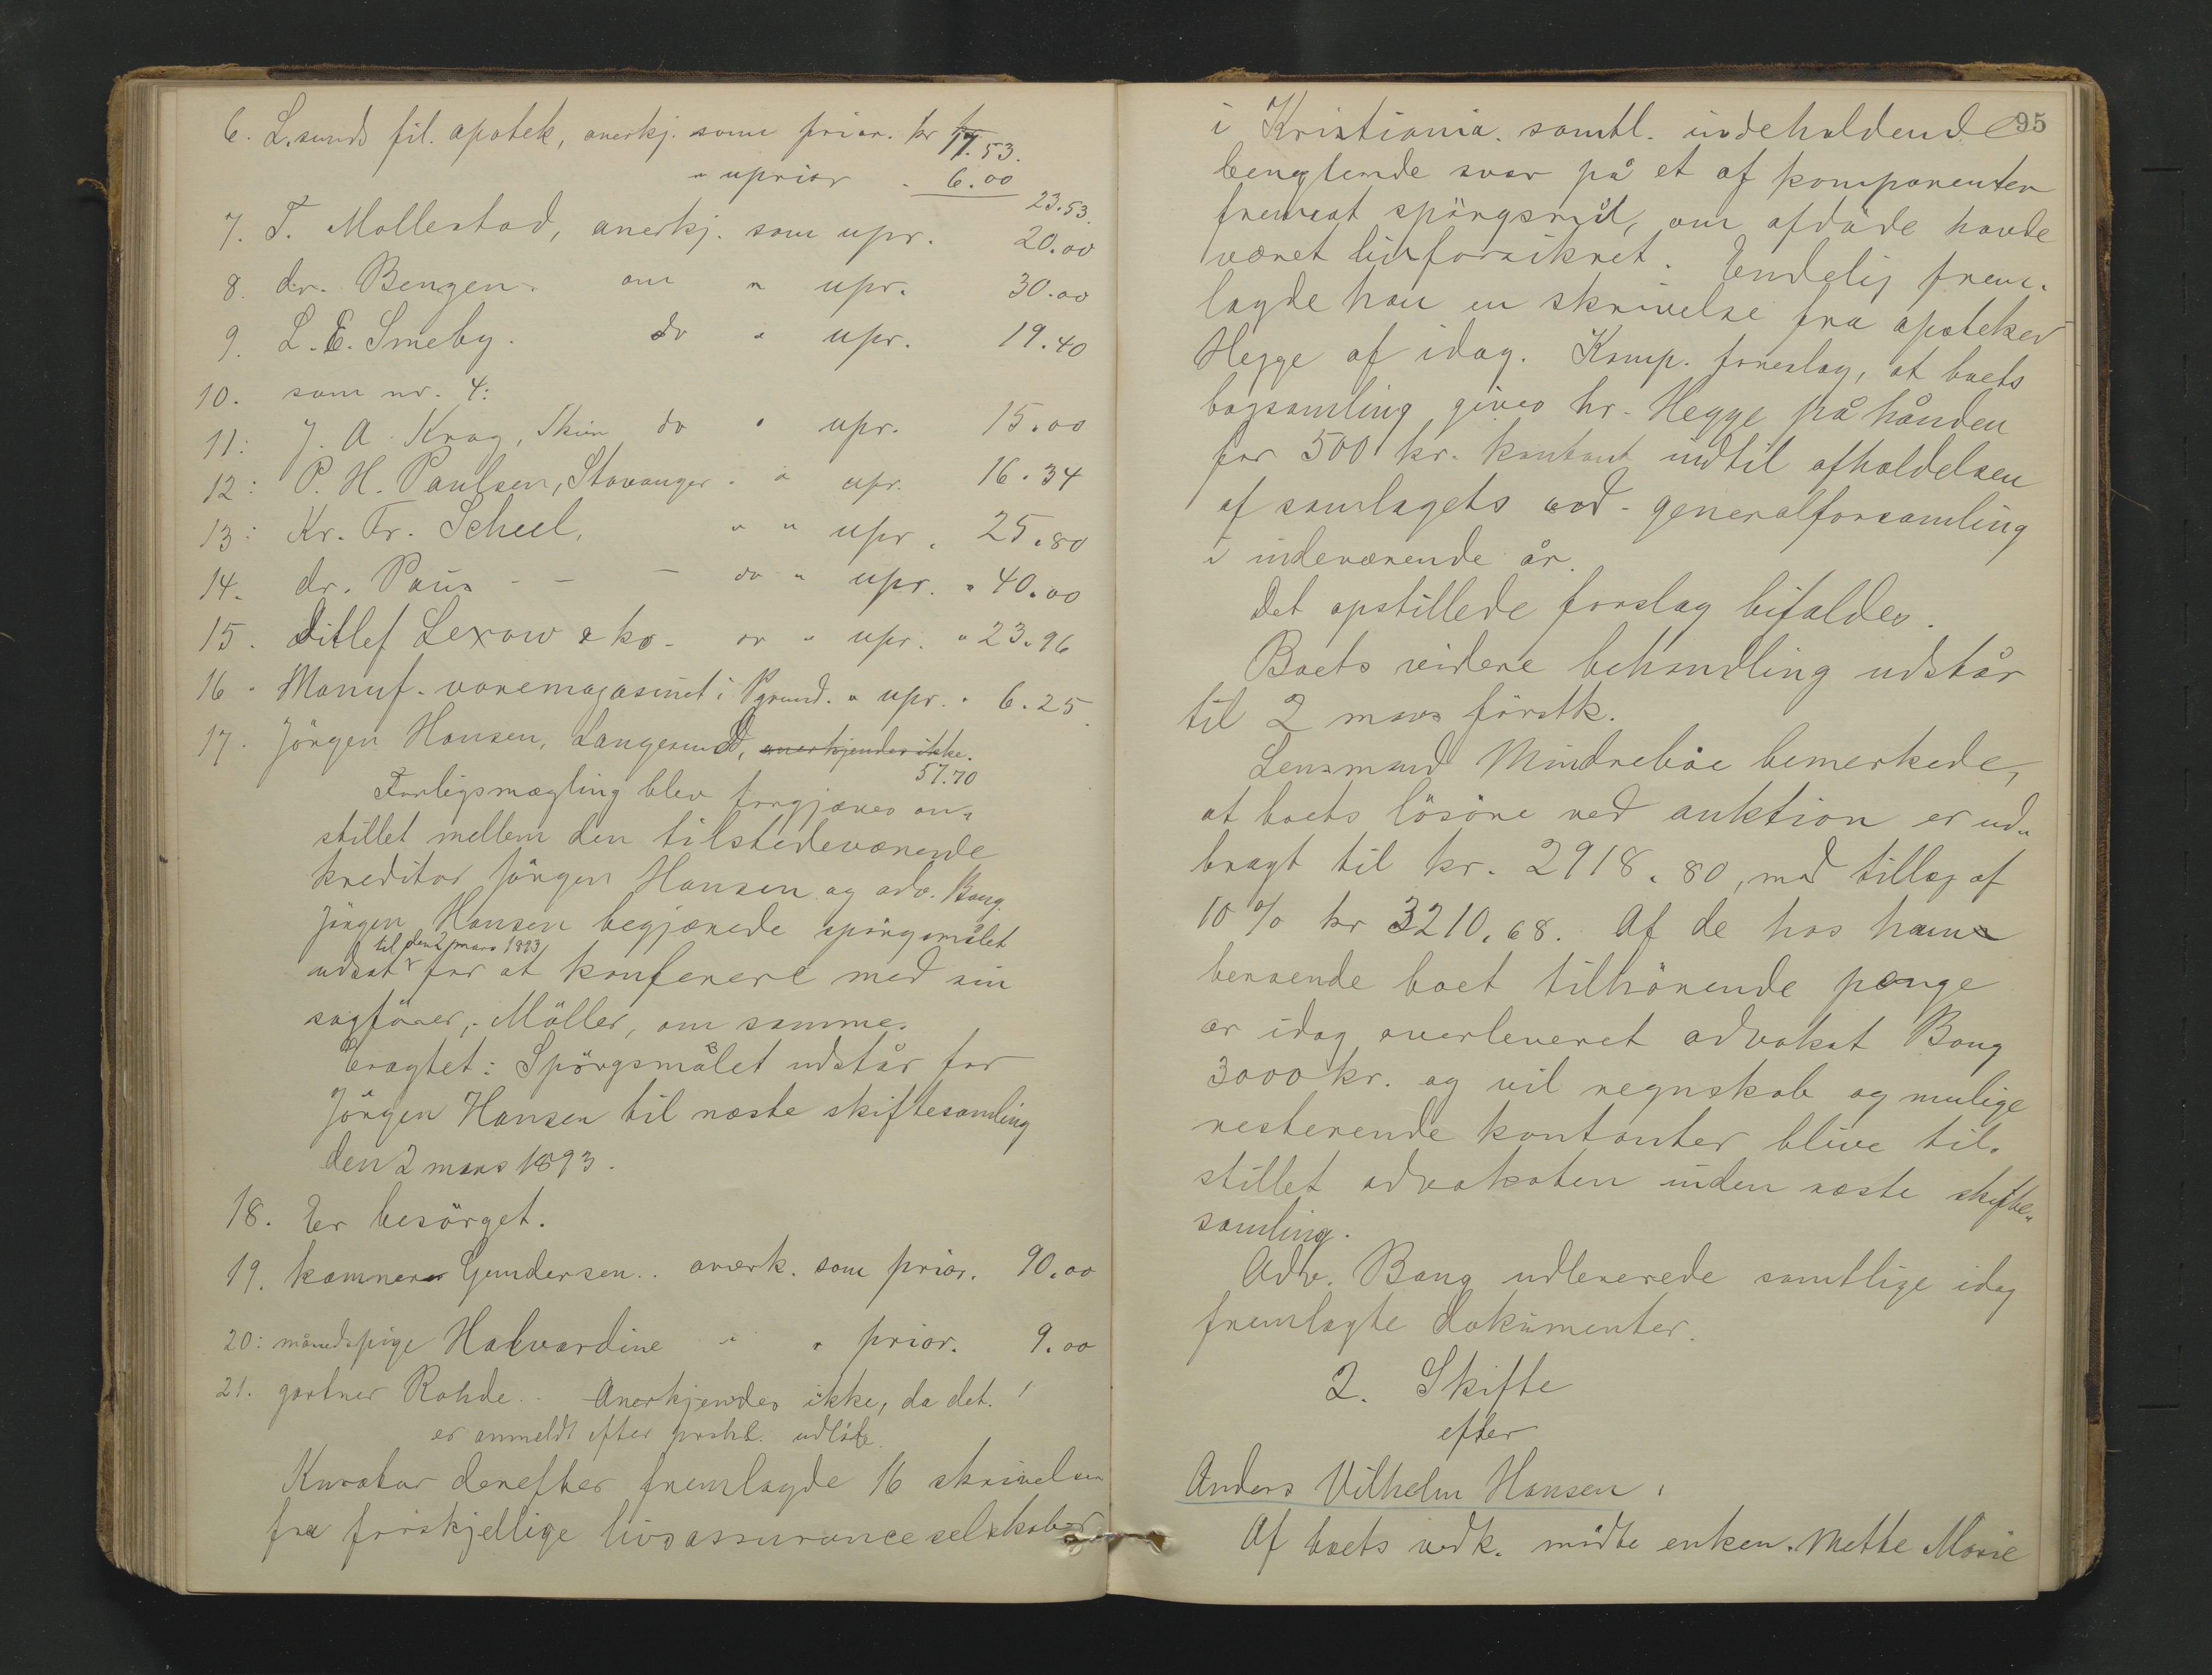 6. L.sunds fil. apotek, anerkj. som prior. kr 17.53.
" uprior " 6.00
23.53.
7. T. Mollestad, anerkj. som upr. 20.00
8. dr. Bengen. " upr. 30.00
9. L. E. Smeby. do " upr. 19.40
10. som nr. 4:
11: J. A. Krag, Skien do " upr. 15.00
12: P. H. Paulsen, Stavanger " " upr. 16.34
13: Kr. Fr. Scheel, " " upr. 25.80
14. dr. Paus - - - do " upr. " 40.00
15. Ditlef Lexow & ko. " upr. " 23.96
16. Manuf. varemagasinet i Pgrund. " upr. " 6.25
17. Jörgen Hansen, Langesund, anerkjendes ikke.
57.70
Forligsmægling blev forgjæves an-
stillet mellem den tilstedeværende
kreditor Jörgen Hansen og adv. Bang.
Jörgen Hansen begjærede spörgsmålet
til den 2 mars 1893
udsat for at konferere med sin
sagförer, Möller, om samme.
Eragtet: Spörgsmålet udstår for
Jörgen Hansen til næste skiftesamling
den 2 mars 1893.
18. Er besörget.
19. kæmner Gundersen.. anerk. som prior. 90.00
20: månedspige Halvardine " " prior. 9.00
21. gartner Rohde. - Anerkjendes ikke, da det
er anmeldt efter prokl. udløb.
Kurator derefter fremlagde 16 skrivelser
fra forskjellige livsassuranceselskaber
95
i Kristiania. samtl. indeholdende
benegtende svar på et af komparenten
fremsat spörgsmål, om afdöde havde
været livsforsikret. Endelig frem-
lagde han en skrivelse fra apoteker
Hegge af idag. Komp. foreslog, at boets
bogsamling gives hr. Hegge på hånden
for 500 kr. kontant indtil afholdelsen
af samlagets ord. generalforsamling
i indeværende år.
Det opstillede forslag bifaldes.
Boets videre behandling udstår
til 2 mars förstk.
Lensmand Mindrebøe bemerkede,
at boets lösöre ved auktion er ud-
bragt til kr. 2918.80, med tillæg af
10 % kr 3210.68. Af de hos ham
beroende boet tilhörende penge
er idag overleveret advokat Bang
3000 kr. og vil regnskab og mulige
resterende kontanter blive til-
stillet advokaten inden næste skifte-
samling.
Adv. Bang udleverede samtlige idag
fremlagte dokumenter.
2. Skifte
efter
Anders Vilhelm Hansen.
Af boets vedk. mödte enken. Mette Marie